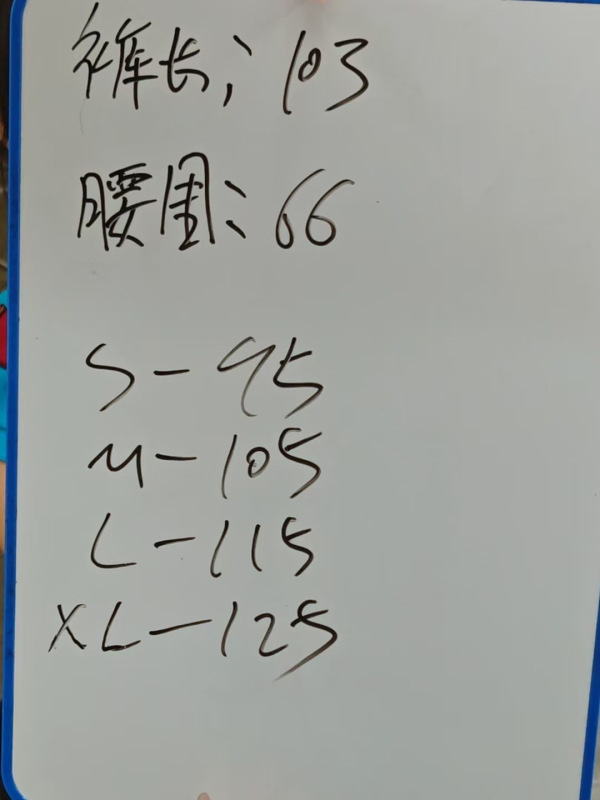 裤长：103
腰围：66
S-95
M-105
L-115
XL-125